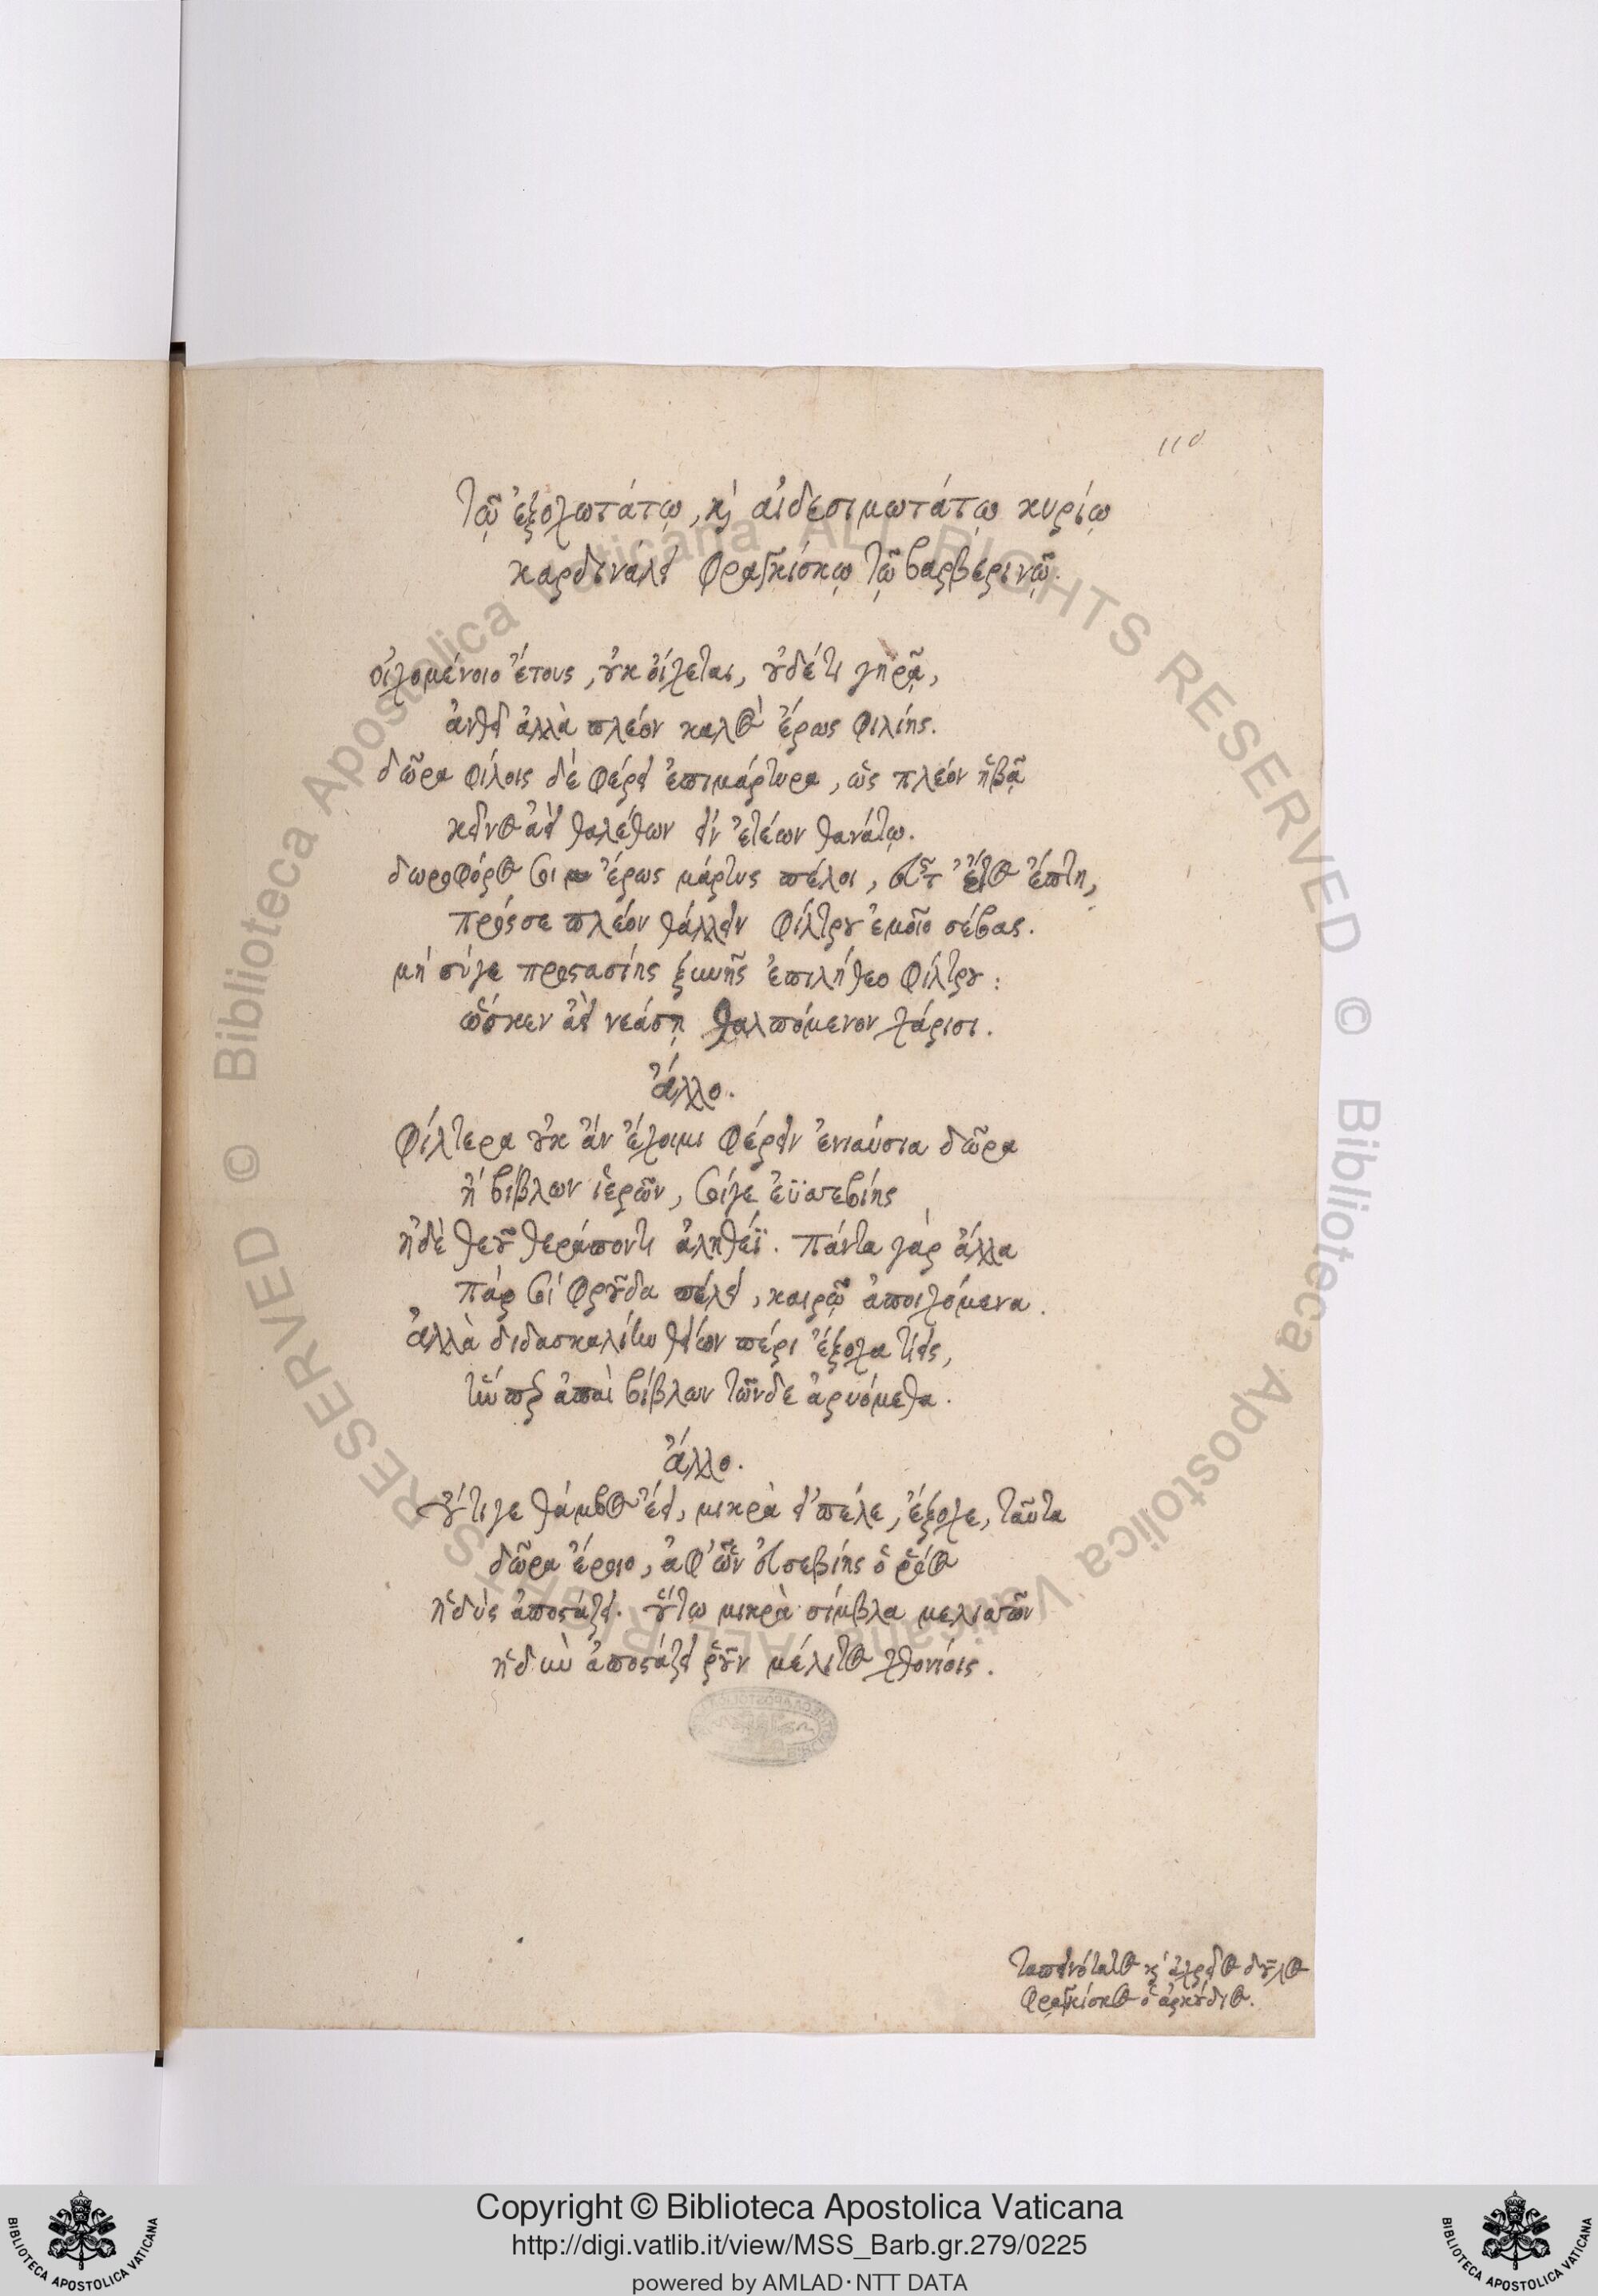 110
τῷ ἐξοχωτάτῳ, κὶ αἰδεσιμωτάτῳ κυρίῳ
καρδινάλει φραγκίσκῳ τῷ βαρβερινῷ.
οἰχομένοιο ἔτους, οὐκ οἴχεται, οὐδέτι γηρᾷ,
ἀνθεῖ ἀλλὰ πλέον καλὸς ἔρως φιλίης.
δῶρα φίλοις δὲ φέρει ἐπιμάρτυρα, ὡς πλέον ἡβᾷ
κεῖνος ἀεὶ θαλέθων εἰν ἐτέων θανάτῳ.
δωροφόρος σοι ἔρως μάρτυς πέλοι, ἔτος ἔπτη,
πρός σε πλέον θάλλειν φίλτρου ἐμοῖο σέβας.
μὴ σύγε προστασίης ξυνῆς ἐπιλήθεο φίλτρου:
ὥς κεν ἀεὶ νεάσῃ θαλπόμενον χάρισι.
ἄλλο.
φίλτερα οὐκ ἂν ἔχοιμι φέρειν ἐνιαύσια δῶρα
ἢ βίβλων ἱερῶν, σοίγε ἐϋσεβίης
ἠδὲ θεοῦ θεράποντι ἀληθέϊ. πάντα γάρ ἄλλα
πάρ σοί φροῦδα πέλει, καιρῷ ἀποιχόμενα.
ἀλλὰ διδασκαλίην θείων πέρι ἔξοχα τίεις,
τήνπερ ἀπαὶ βίβλων τῶνδε ἀρυόμεθα.
ἄλλο.
οὔτιγε θάμβος ἔει, μικρὰ εἰ πέλε, ἔξοχε, ταῦτα
δῶρα ἔμοιο, ἀφ' ὧν εὐσεβίης ὁ ῥόος
ἡδὺς ἀποστάζει. οὕτω μικρὰ σίμβλα μελισσῶν
ἡδὺν ἀποστάζει ῥοῦν μέλιτος χθονίοις.
ταπεινότατος κὶ ἀχρεῖος δοῦλος
φραγκίσκος ὁ ἀρκούδιος.
Copyright © Biblioteca Apostolica Vaticana
http://digi.vatlib.it/view/MSS_Barb.gr.279/0225
powered by AMLAD·NTT DATA
BIBLIOTECA APOSTOLICA VATICANA
BIBLIOTECA APOSTOLICA VATICANA
© Biblioteca Apostolica Vaticana ALL RIGHTS RESERVED © Biblioteca Apostolica Vaticana ALL RIGHTS RESERVED